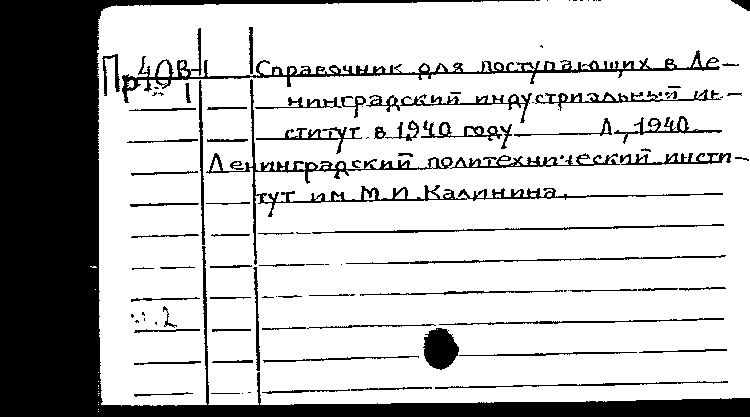 Пр40В-1 Справочник для поступающих в Ле-
1 нинградский индустриальный ин-
ститут в 1940 году Л., 1940
Ленинградский политехнический инсти-
тут им. М.И.Калинина.
2